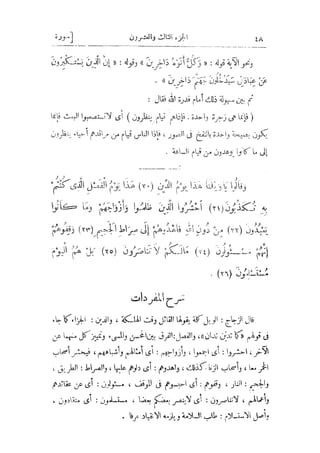 ٤٨ الجزء الثالث والعشرون [سورة
ونحو الآية قوله : « وَكُلٌّ أَتَوْهُ دَاخِرِينَ » وقوله : « إِنَّ الَّذِينَ يَسْتَكْبِرُونَ
عَنْ عِبَادَتِي سَيَدْخُلُونَ جَهَنَّمَ دَاخِرِينَ » .
ثم بين سهولة ذلك أمام قدرة الله فقال :
( فإنما هى زجرة واحدة . فإذا هم قيام ينظرون ) أى لا تستصعبوا البعث فإنما
يكون بصيحة واحدة بالنفخ فى الصور ، فإذا الناس قيام من مراقدهم أحياء ينظرون
إلى ما كانوا يوعدون من قيام الساعة .
وَقَالُوا يَا وَيْلَنَا هَذَا يَوْمُ الدِّينِ (٢٠) هَذَا يَوْمُ الْفَصْلِ الَّذِى كُنْتُمْ
بِهِ تُكَذِّبُونَ (٢١) احْشُرُوا الَّذِينَ ظَلَمُوا وَأَزْوَاجَهُمْ وَمَا كَانُوا
يَعْبُدُونَ (٢٢) مِنْ دُونِ اللهِ فَاهْدُوهُمْ إِلَى صِرَاطِ الْجَحِيمِ (٢٣) وَقِفُوهُمْ
إِنَّهُمْ مَسْئُولُونَ (٢٤) مَا لَكُمْ لَا تَنَاصَرُونَ (٢٥) بَلْ هُمُ الْيَوْمَ
مُسْتَسْلِمُونَ (٢٦) .
شرح المفردات
قال الزجاج : الويل كلمة يقولها القائل وقت الهلكة ، والدين : الجزاء كما جاء
فى قولهم « كما تدين تدان » ، والفصل : الفرق بين المحسن والمسىء وتمييز كل منهما عن
الآخر ، احشروا : أى اجمعوا ، وأزواجهم : أى أمثالهم وأشباههم ، فيحشر أصحاب
الخمر معا ، وأصحاب الزنا كذلك ، واهدوهم : أى دلوهم عليها ، والصراط : الطريق ،
والجحيم : النار ، وقفوهم : أى احبسوهم فى الموقف ، مسئولون : أى عن عقائدهم
وأعمالهم ، لاتناصرون : أى لاينصر بعضكم بعضا ، مستسلمون : أى منقادون .
وأصل الاستسلام : طلب السلامة ويلزمه الانقياد عرفا .